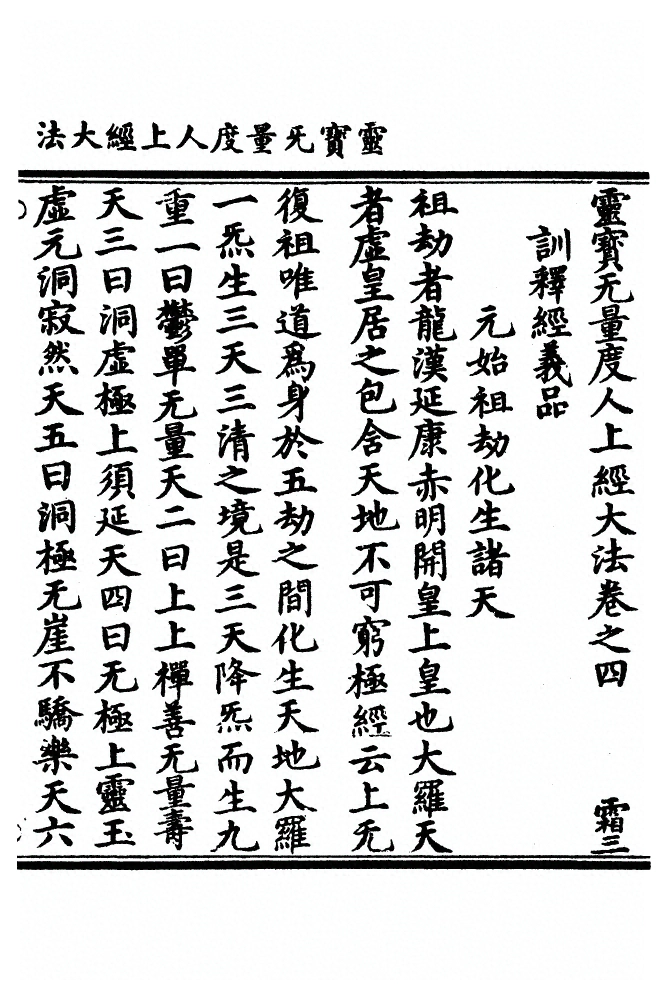 靈寶旡量度人上經大法
靈寶无量度人上經大法卷之四 霜三
訓釋經義品
元始祖劫化生諸天
祖劫者龍漢延康赤明開皇上皇也大羅天
者虛皇居之包含天地不可窮極經云上旡
復祖唯道爲身於五劫之間化生天地大羅
一炁生三天三清之境是三天降炁而生九
重一曰鬱單无量天二曰上上禪善无量壽
天三曰洞虛極上須延天四曰无極上靈玉
虛元洞寂然天五曰洞極无崖不驕樂天六